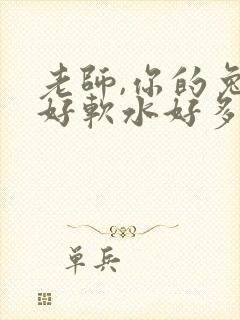 老師,你的兔
好軟水好多
單兵